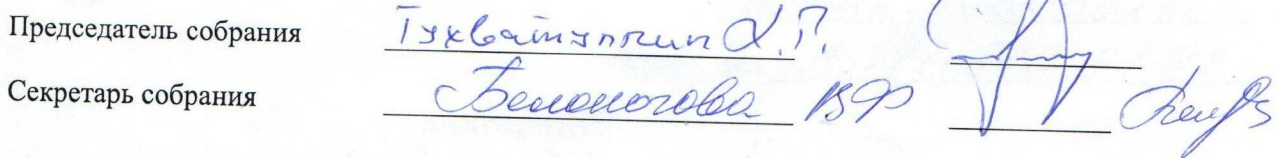 Председатель собрания Тухватуллин Х.Г.
Секретарь собрания Белоногова ВФ